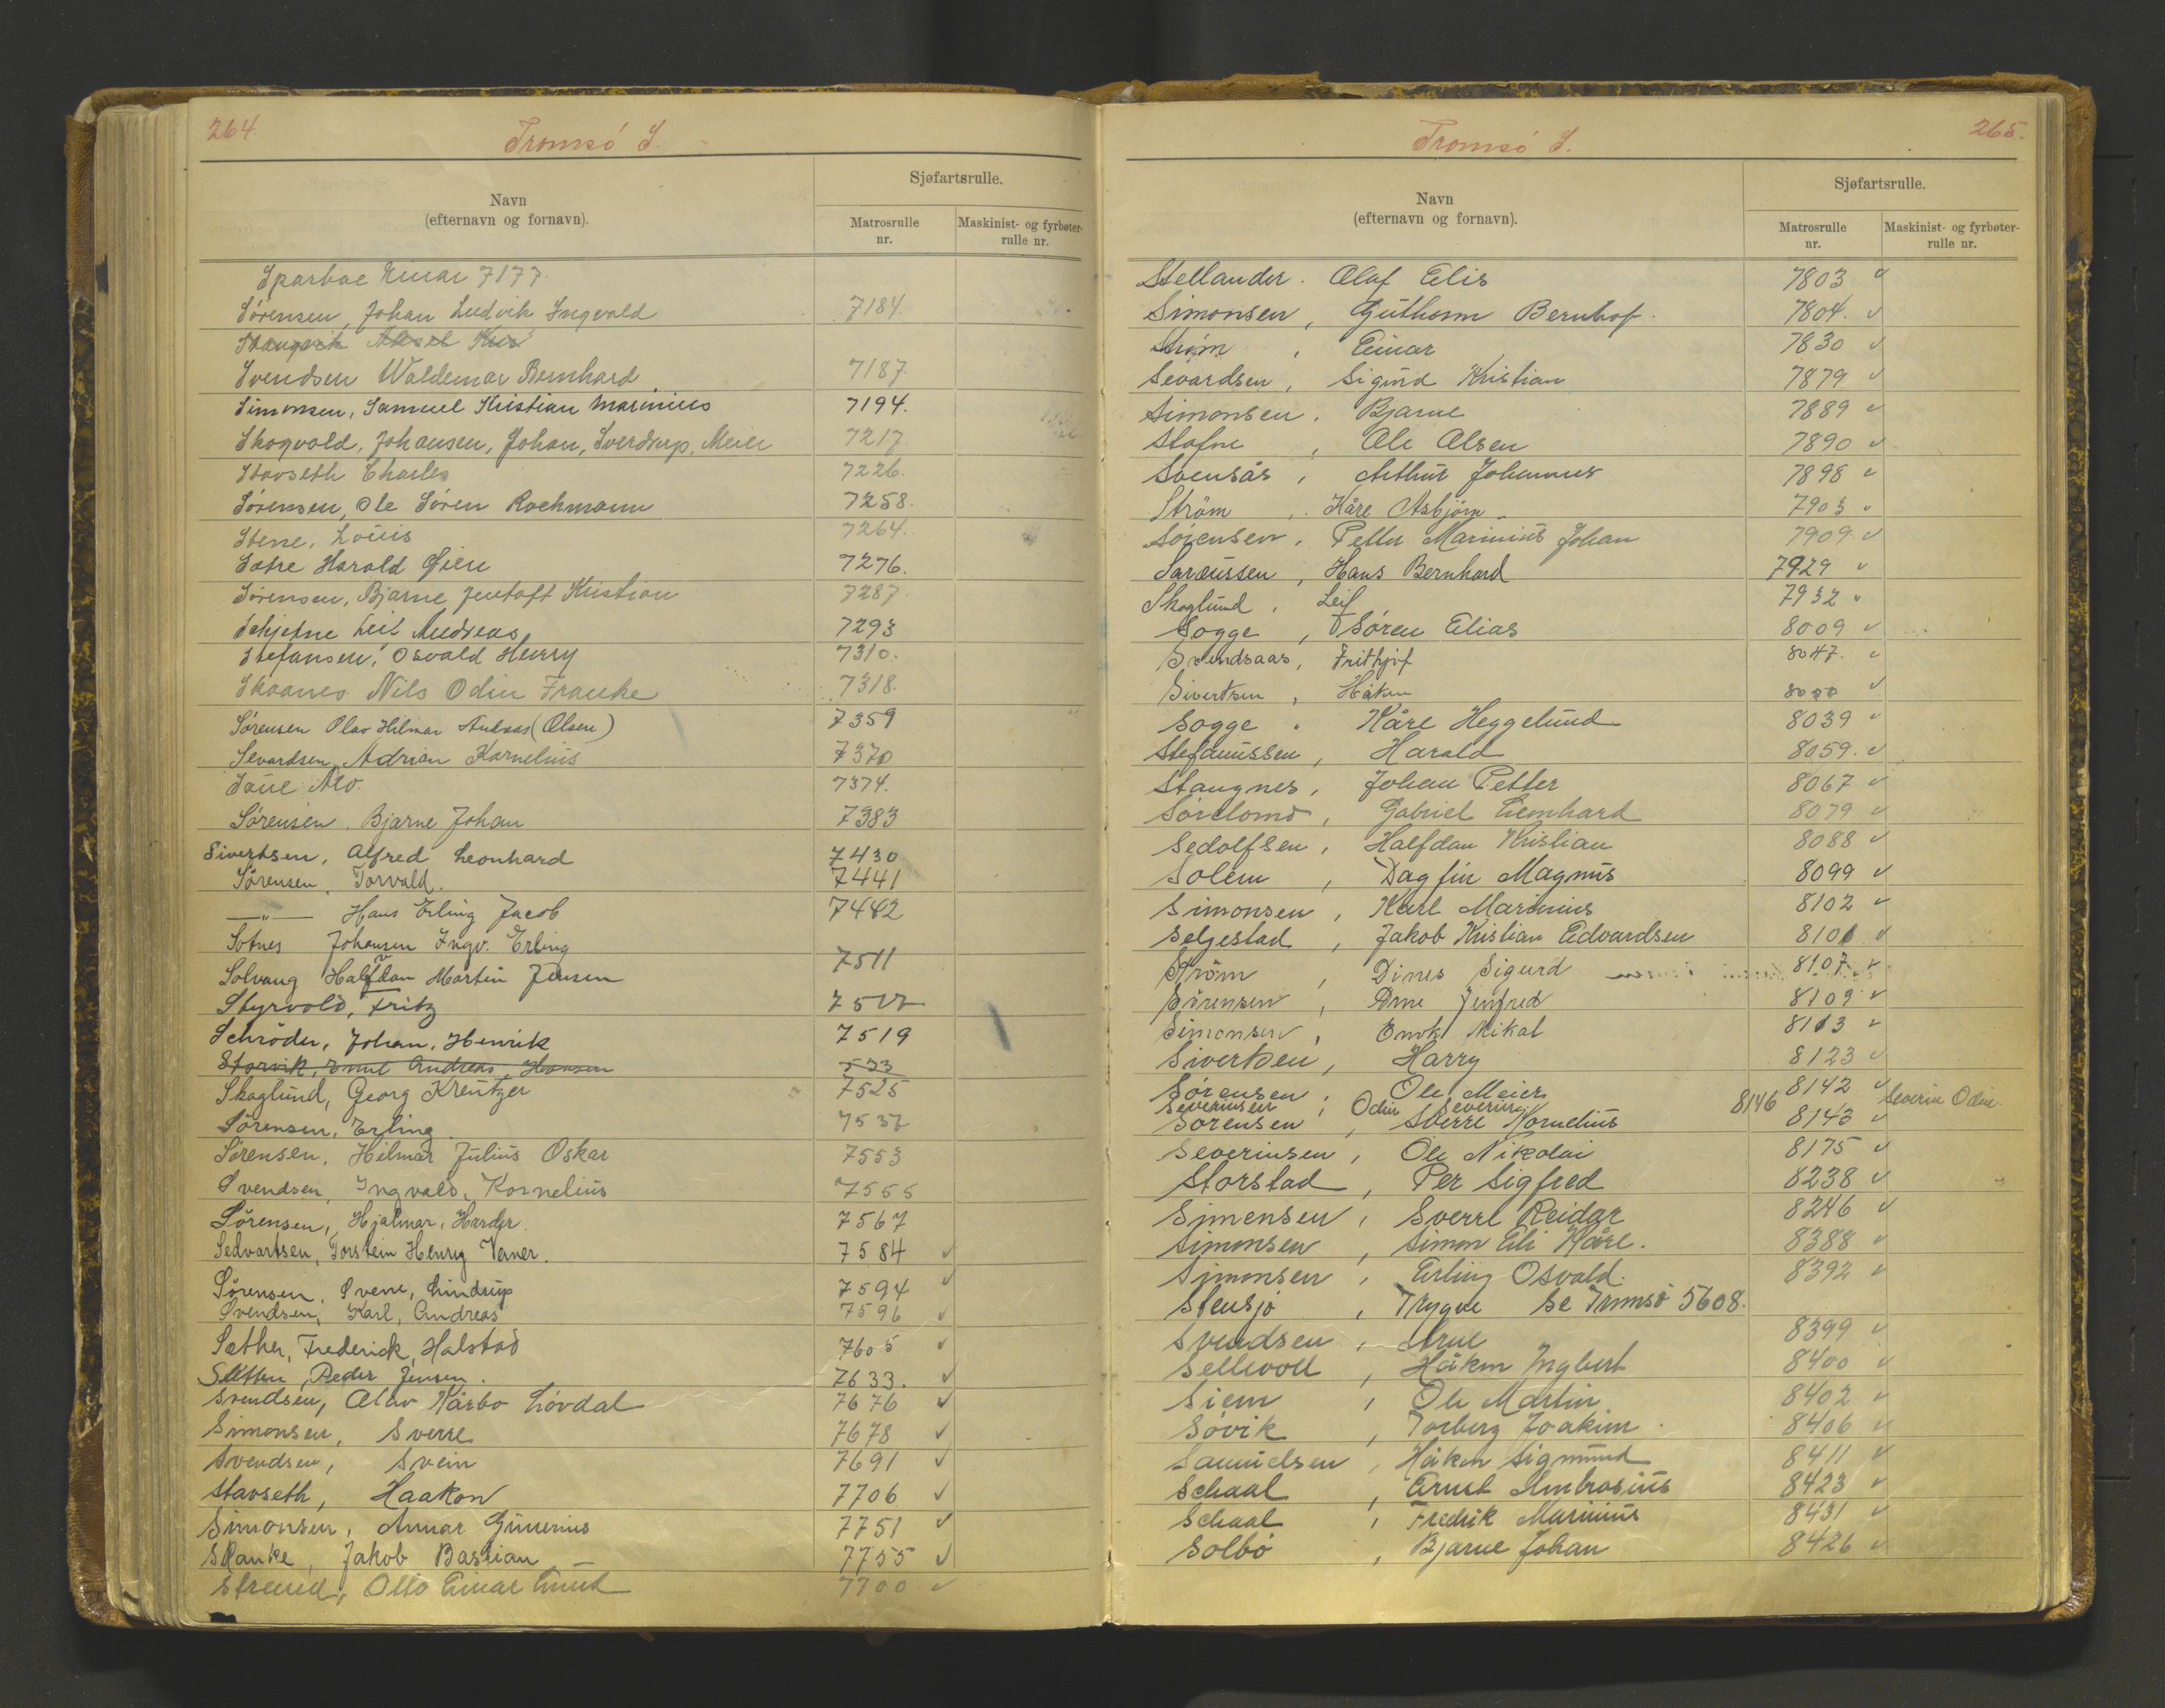 264
Tromsö S.
Navn
(efternavn og fornavn).
Sjøfartsrulle.
Matrosrulle
nr.
Maskinist- og fyrbøter-
rulle nr.
Sparboe Einar 7177.
Sörensen, Johan Ludvik Ingvald 7184.
Aksel
Svendsen Waldemar Bernhard 7187
Simonsen, Samuel Kristian Marinius 7194.
Skogvold, Johansen, Johan, Sverdrup, Meier 7217.
Stavseth Charles 7226.
Sörensen, Ole Sören Rochmann 7258.
Stene, Louis 7264.
Sætre Harald Gien 7276.
Sörensen, Bjarne Jentoft Kristian 7287
Schjefne Leif Andreas 7293
Stefansen, Osvald Henry 7310.
Skaanes Nils Odin Franke 7318.
Sörensen Olav Hilmar Andreas (Olsen) 7359
Sevardsen, Adrian Kornelius 7370
Saue Alv. 7374.
Sörensen, Bjarne Johan 7383
Sivertsen, Alfred Leonhard 7430
Sörensen, Torvald. 7441
—"— Hans Erling Jacob 7442
Sotnes Johansen Ingv. Erling
Solvang Halfdan Martin Jensen 7511
Styrvold, Fritz
Schröder, Johan, Henrik 7519
Storvik, Emil Andreas Hansen 533
Skoglund, Georg Kreutzer 7525
Sörensen, Erling 7532
Sörensen, Hilmar Julius Oskar 7553
Svendsen, Ingvald, Kornelius 7555
Sörensen, Hjalmar, Harder. 7567
Sedvartsen, Torstein Henry Verner. 7584 ✓
Sörensen, Svene, Lindrup 7594 ✓
Svendsen, Karl, Andreas 7596 ✓
Sæther, Frederick, Halstad 7605 ✓
Sletten, Peder Jensen. 7633. ✓
Svendsen, Olav Kårbø Lövdal 7676 ✓
Simonsen, Sverre 7678 ✓
Svendsen, Svein 7691 ✓
Stavseth, Haakon 7706 ✓
Simonsen, Annar Gunerius 7751 ✓
Skanke, Jakob Bastian 7755 ✓
Strand, Otto Einar Emil 7700 ✓
265.
Tromsö S.
Navn
(efternavn og fornavn).
Sjøfartsrulle.
Matrosrulle
nr.
Maskinist- og fyrbøter-
rulle nr.
Stellander. Olaf Elis 7803 ✓
Simonsen, Guthorm Bernhof. 7804. ✓
Ström, Einar 7830 ✓
Sevardsen, Sigurd Kristian 7879 ✓
Simonsen, Bjarne 7889 ✓
Stafne, Ole Olsen 7890 ✓
Svensås, Arthur Johannes 7898 ✓
Ström, Kåre Asbjörn 7903 ✓
Sörensen, Petter Marinius Johan 7909. ✓
Saræussen, Hans Bernhard 7929 ✓
Skoglund, Leif 7932 ✓
Sogge, Sören Elias 8009 ✓
Svendsaas, Frithjof 8047. ✓
Sivertsen, Håkon ✓
Sogge, Kåre Heggelund 8039 ✓
Stefanussen, Harald 8059. ✓
Stangnes, Johan Petter 8067 ✓
Sörelomo, Gabriel Liemhard 8079 ✓
Sedolfsen, Halfdan Kristian 8088 ✓
Solem, Dagfin Magnus 8099 ✓
Simonsen, Karl Marinius 8102 ✓
Seljestad, Jakob Kristian Edvardsen 8101 ✓
Ström, Dines Sigurd 8107 ✓
Sörensen, Arne Jenfred 8109 ✓
Simonsen, Enok Mikal 8113 ✓
Sivertsen, Harry 8123 ✓
Sörensen, Ole Meier 8142 ✓
Severinsen, Odin Severin 8146 Severin Odin
Sörensen, Sverre Kornelius 8143 ✓
Severinsen, Ole Nikolai 8175 ✓
Storstad, Per Sigfred 8238 ✓
Simensen, Sverre Reidar 8246 ✓
Simonsen, Simon Eli Kåre. 8388 ✓
Simonsen, Erling Osvald. 8392 ✓
Stensjö, Trygve Se Tromsö 5608.
Svendsen, Arne 8399 ✓
Sellevoll, Håkon Ingbert 8400 ✓
Siem, Ole Martin 8402 ✓
Sövik, Torberg Joakim 8406 ✓
Samuelsen, Håkon Sigmund 8411 ✓
Schaal, Ernst Ambrosius 8423 ✓
Schaal, Fredrik Marinius 8431 ✓
Solbö, Bjarne Johan 8426 ✓